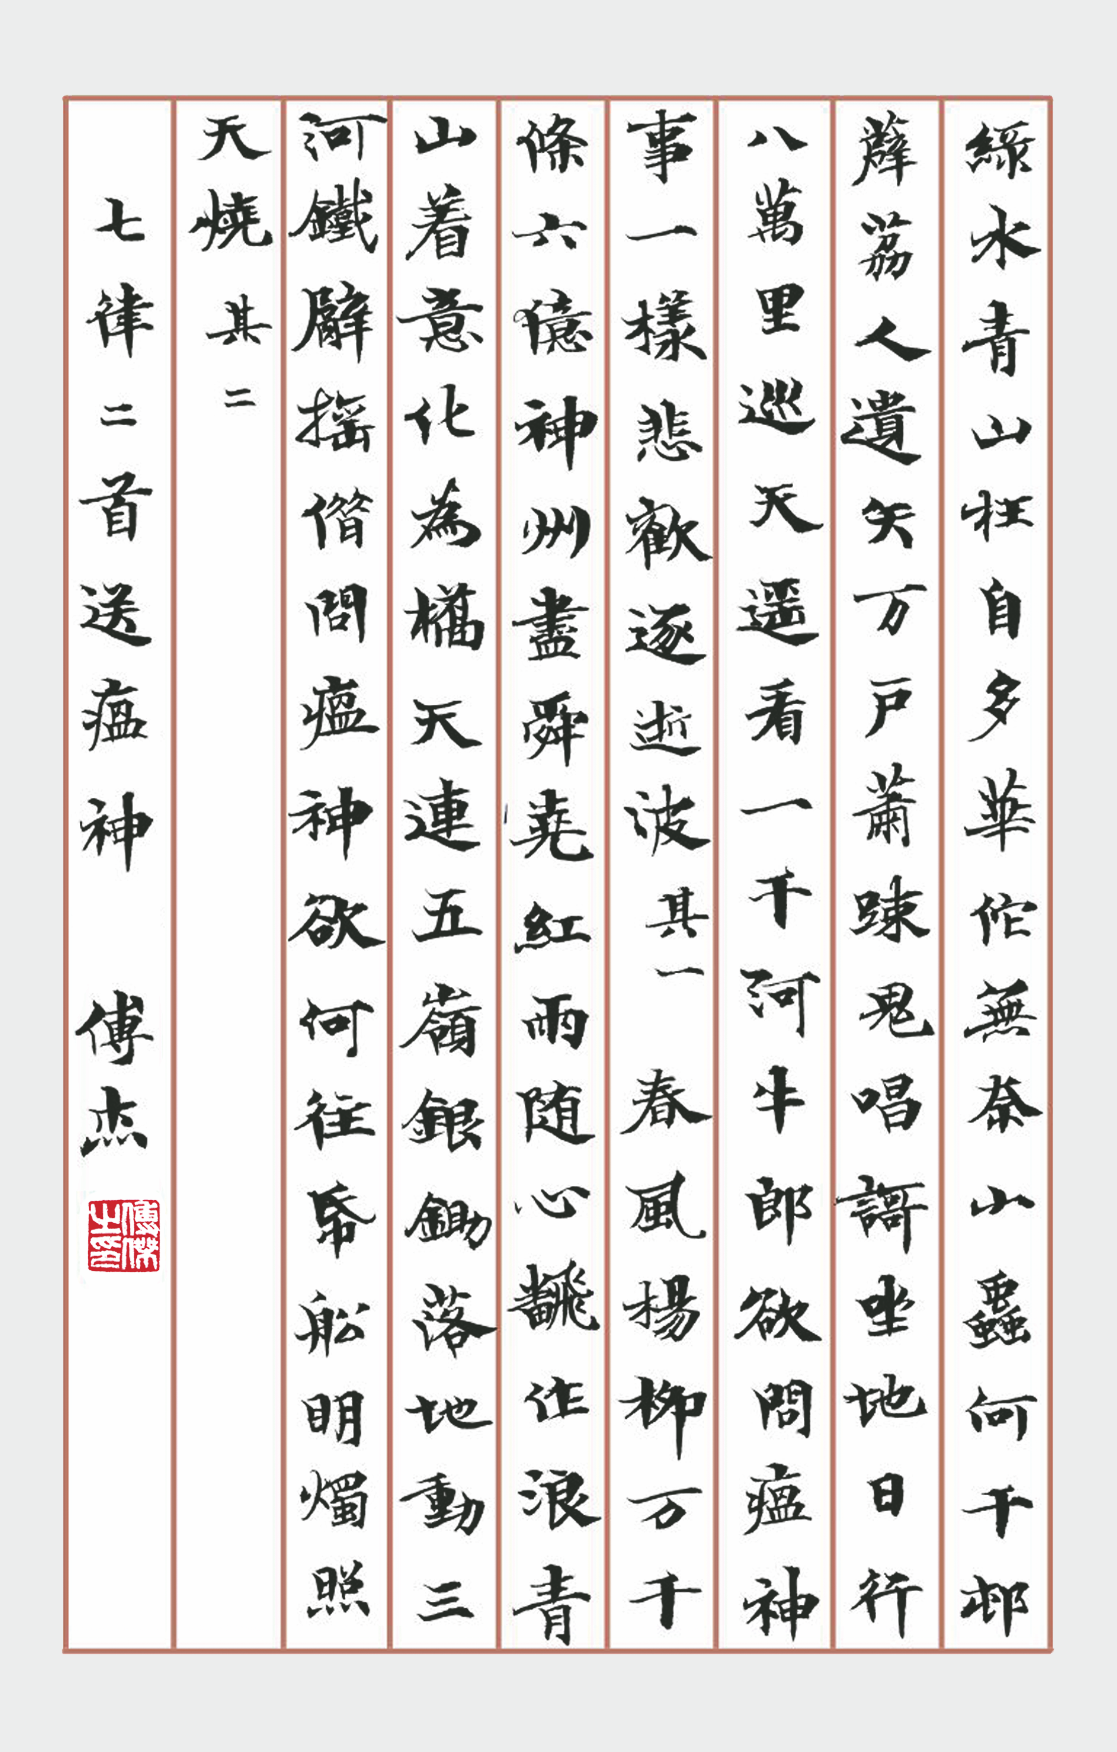 綠水青山枉自多華佗無奈小蟲何千邨
薜荔人遺矢万戸蕭踈鬼唱謌坐地日行
八萬里巡天遥看一千河牛郎欲問瘟神
事一樣悲歡逐逝波其一春風楊柳万千
條六億神州盡舜堯紅雨随心翻作浪青
山着意化為橋天連五嶺銀鋤落地動三
河鐵臂搖借問瘟神欲何往帋船明燭照
天燒其二
七律二首送瘟神傅杰
傅傑之印